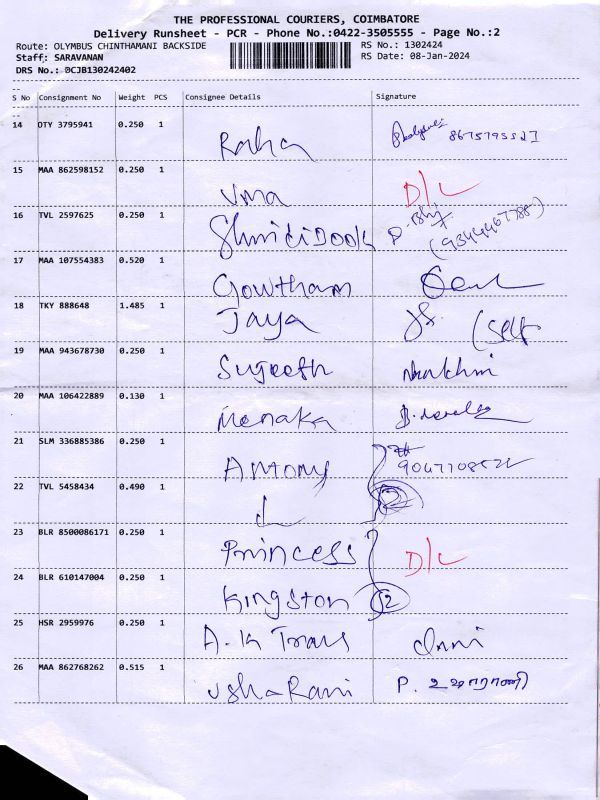 THE PROFESSIONAL COURIERS, COIMBATORE
Delivery Runsheet - PCR - Phone No.:0422-3505555 - Page No.:2
Route: OLYMBUS CHINTHAMANI BACKSIDE RS No.: 1302424
Staff: SARAVANAN RS Date: 08-Jan-2024
DRS No.: 0CJB130242402
S No Consignment No Weight PCS Consignee Details Signature
14 OTY 3795941 0.250 1
15 MAA 862598152 0.250 1 Uma D/L
16 TVL 2597625 0.250 1
17 MAA 107554383 0.520 1 Gowtham
18 TKY 888648 1.485 1 Jaya (Self
19 MAA 943678730 0.250 1 Sujeeth
20 MAA 106422889 0.130 1 Menaka
21 SLM 336885386 0.250 1 Antony
22 TVL 5458434 0.490 1 2
23 BLR 8500086171 0.250 1 Princess D/L
24 BLR 610147004 0.250 1 Kingston 2
25 HSR 2959976 0.250 1 A.K Trans
26 MAA 862768262 0.515 1 Usha Rani P. உஷாராணி